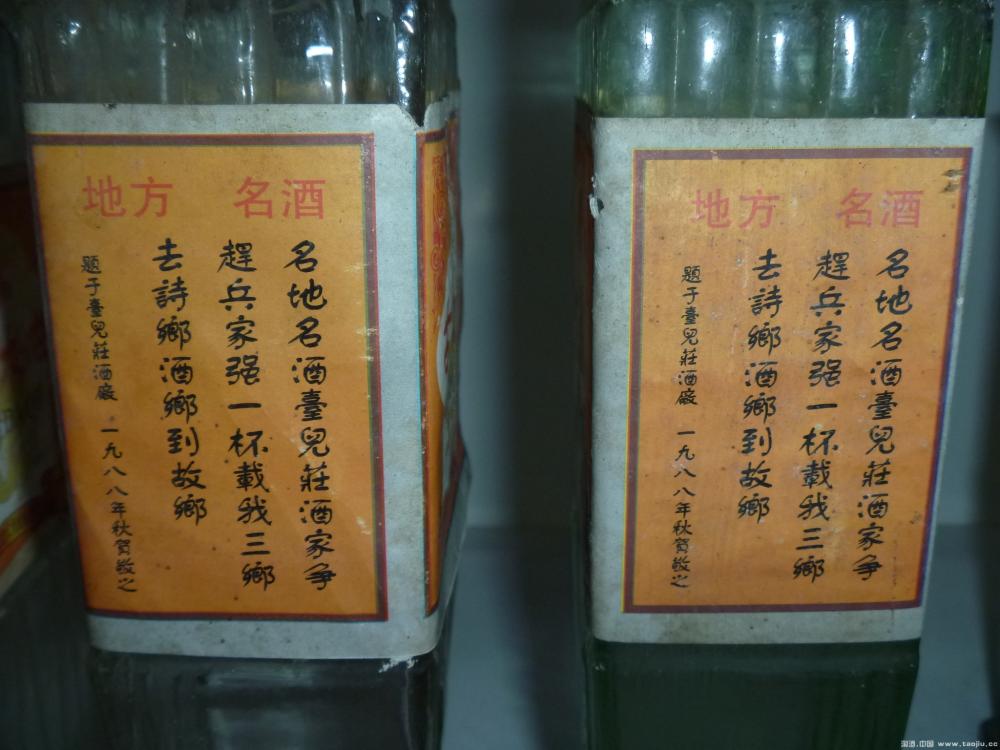 地方 名酒
名地名酒臺兒莊酒家爭
趕兵家强一杯載我三鄉
去詩鄉酒鄉到故鄉
題于臺兒莊酒廠 一九八八年秋賀敬之
地方 名酒
名地名酒臺兒莊酒家爭
趕兵家强一杯載我三鄉
去詩鄉酒鄉到故鄉
題于臺兒莊酒廠 一九八八年秋賀敬之
淘酒.中国 www.taojiu.cc